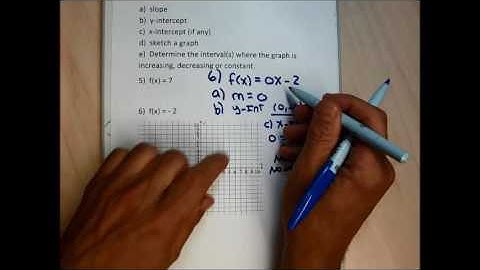 a) slope
b) y-intercept
c) x-intercept (if any)
d) sketch a graph
e) Determine the interval(s) where the graph is
increasing, decreasing or constant.
5) f(x) = 7
6) f(x) = 0x - 2
a) m = 0
b) y-int (0,
6) f(x) = - 2
c) x-
0 =